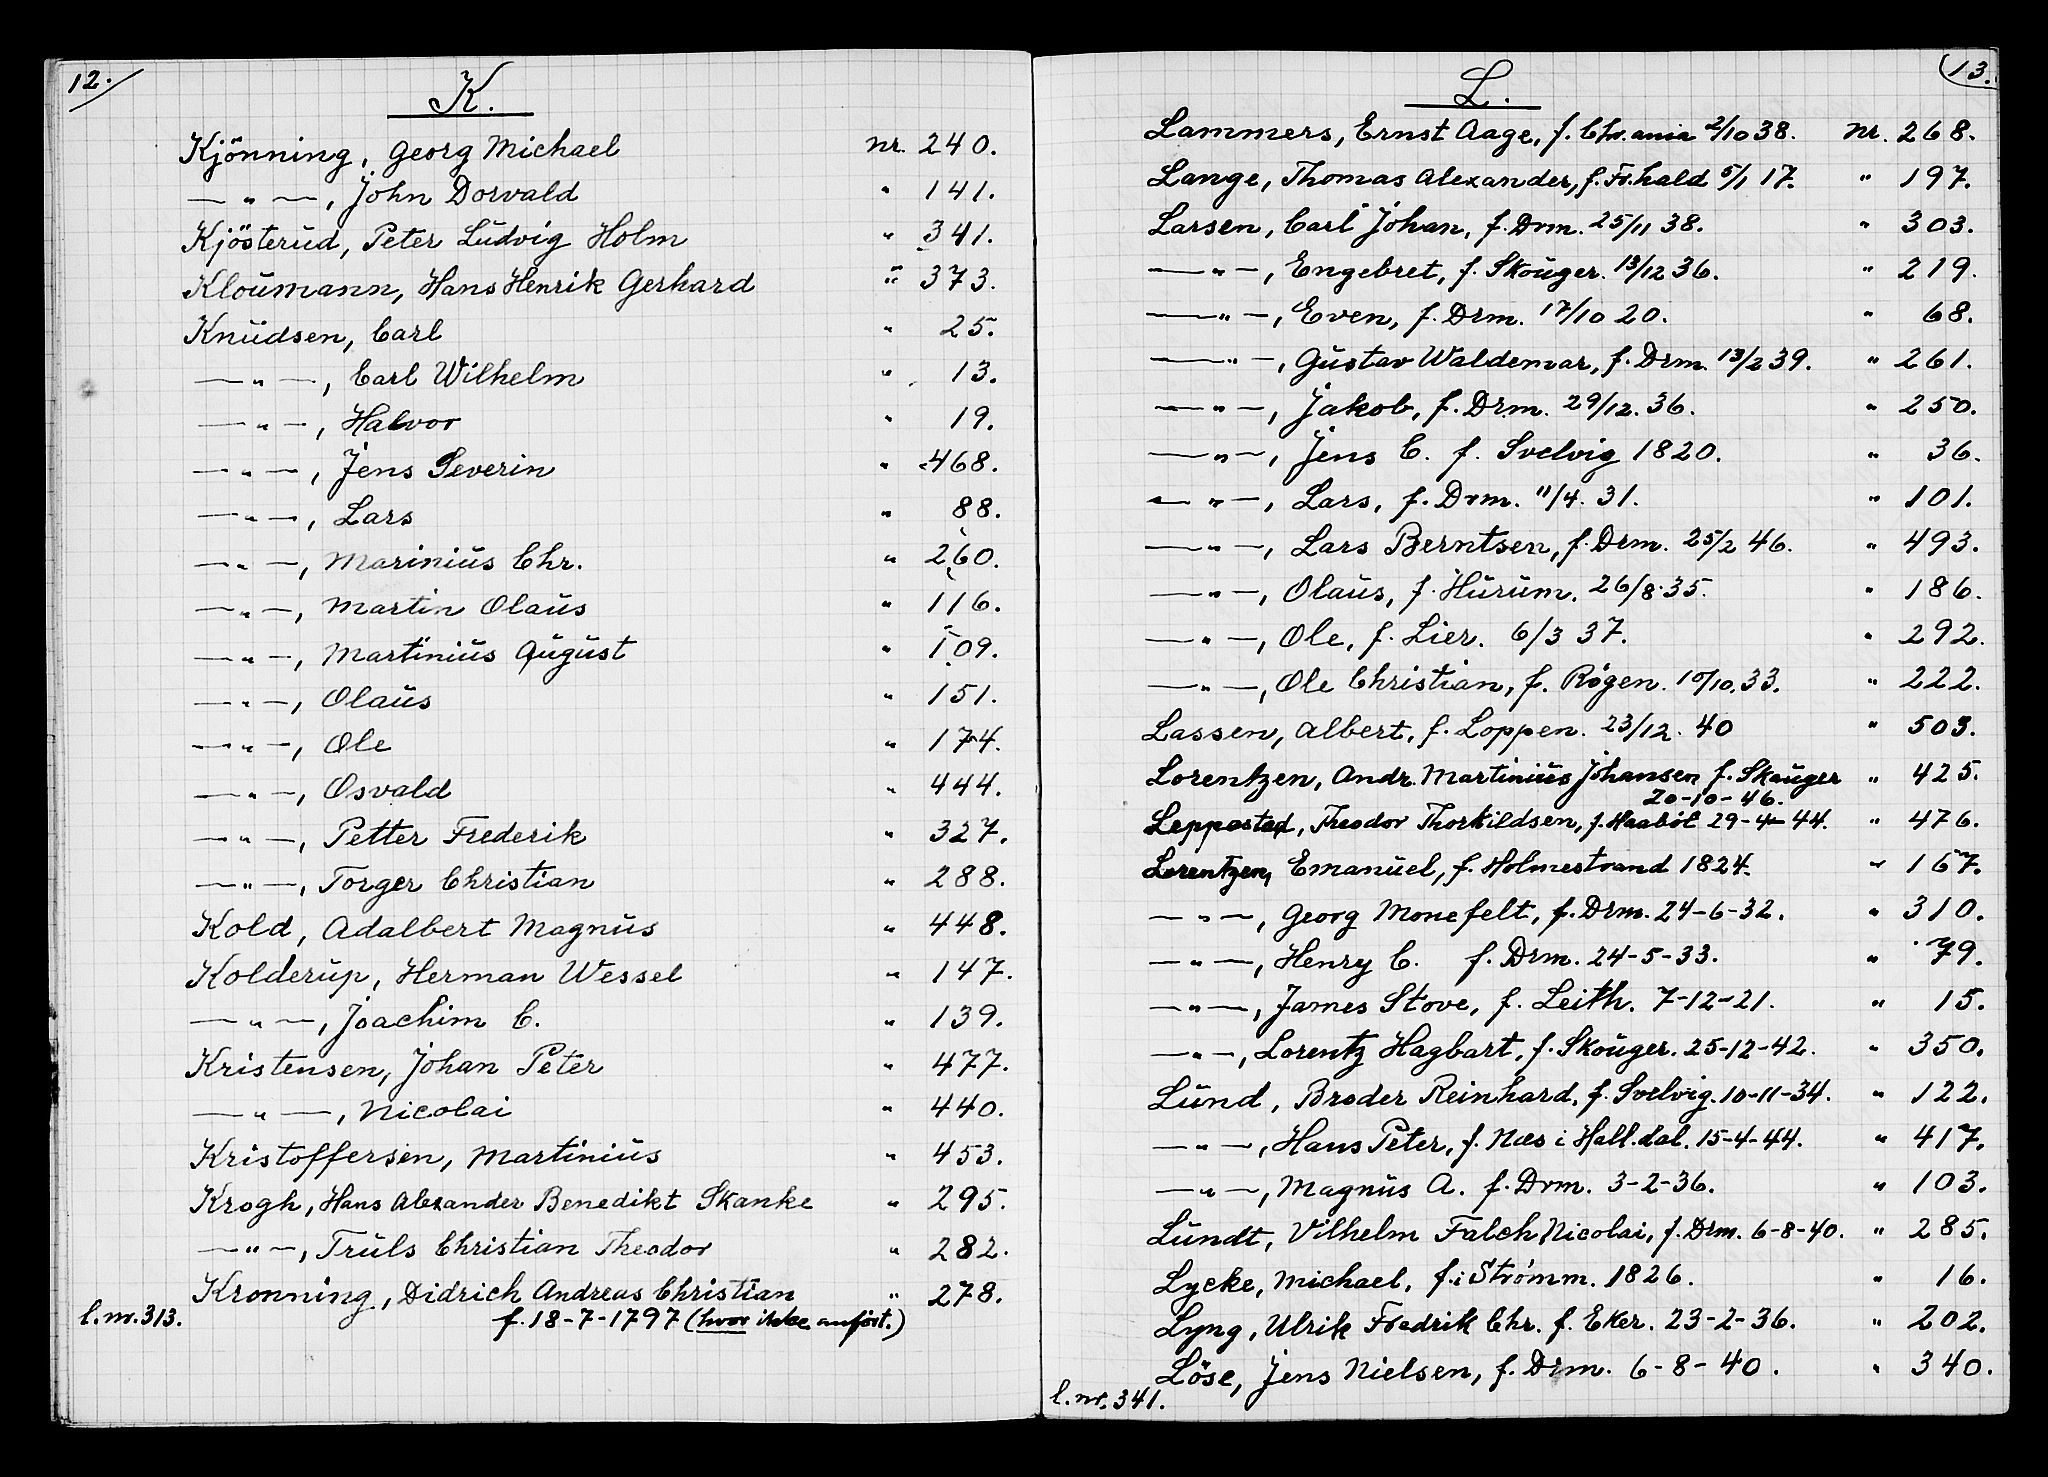 12.
K.
Kjönning, Georg Michael nr. 240.
— " —, John Dorvald " 141.
Kjösterud, Peter Ludvig Holm " 341.
Kloumann, Hans Henrik Gerhard " 373.
Knudsen, Carl " 25.
— " —, Carl Wilhelm " 13.
— " —, Halvor " 19.
— " —, Jens Severin " 468.
— " —, Lars " 88.
— " —, Marinius Chr. " 260.
— " —, Martin Olaus " 116.
— " —, Martinius August " 109.
— " —, Olaus " 151.
— " —, Ole " 174.
— " —, Osvald " 444.
— " —, Petter Frederik " 327.
— " —, Torger Christian " 288.
Kold, Adalbert Magnus " 448.
Kolderup, Herman Wessel " 147.
— " —, Joachim C. " 139.
Kristensen, Johan Peter " 477.
— " —, Nicolai " 440.
Kristoffersen, Martinius " 453.
Krogh, Hans Alexander Benedikt Skanke " 295.
— " —, Truls Christian Theodor " 282.
Kronning, Didrich Andreas Christian " 278.
l.nr.313. f. 18-7-1797 (hvor ikke anført.)
13.
L.
Lammers, Ernst Aage, f. Chr.ania 2/10 38. nr. 268.
Lange, Thomas Alexander, f. Fr.hald 5/1 17. " 197.
Larsen, Carl Johan, f. Drm. 25/11 38. " 303.
— " —, Engebret, f. Skouger. 13/12 36. " 219.
— " —, Even, f. Drm. 17/10 20. " 68.
— " —, Gustav Waldemar, f. Drm. 13/2 39. " 261.
— " —, Jakob, f. Drm. 29/12. 36. " 250.
— " —, Jens C. f. Svelvig 1820. " 36.
— " —, Lars, f. Drm. 11/4. 31. " 101.
— " —, Lars Berntsen, f. Drm. 25/2 46. " 493.
— " —, Olaus, f. Hurum. 26/8.35. " 186.
— " —, Ole, f. Lier. 6/3 37. " 292.
— " —, Ole Christian, f. Rögen. 10/10.33. " 222.
Lassen, Albert, f. Loppen. 23/12. 40 " 503.
Lorentzen, Andr. Martinius Johansen f. Skauger " 425.
20-10-46.
Leppestad, Theodor Thorkildsen, f. Haaböl 29-4-44. " 476.
Lorentzen, Emanuel, f. Holmestrand 1824. " 167.
— " —, Georg Monefelt, f. Drm. 24-6-32. " 310.
— " —, Henry C. f. Drm. 24-5-33. " 79.
— " —, James Stove, f. Leith. 7-12-21. " 15.
— " —, Lorentz Hagbart, f. Skouger. 25-12-42. " 350.
Lund, Broder Reinhard, f. Svelvig. 10-11-34. " 122.
— " —, Hans Peter, f. Næs i Hall.dal. 15-4-44. " 417.
— " —, Magnus A. f. Drm. 3-2-36. " 103.
Lundt, Vilhelm Falch Nicolai, f. Drm. 6-8-40. " 285.
Lycke, Michael, f. i Strømm. 1826. " 16.
Lyng, Ulrik Fredrik Chr. f. Eker. 23-2-36. " 202.
Löse, Jens Nielsen, f. Drm. 6-8-40. " 340.
l.nr.341.